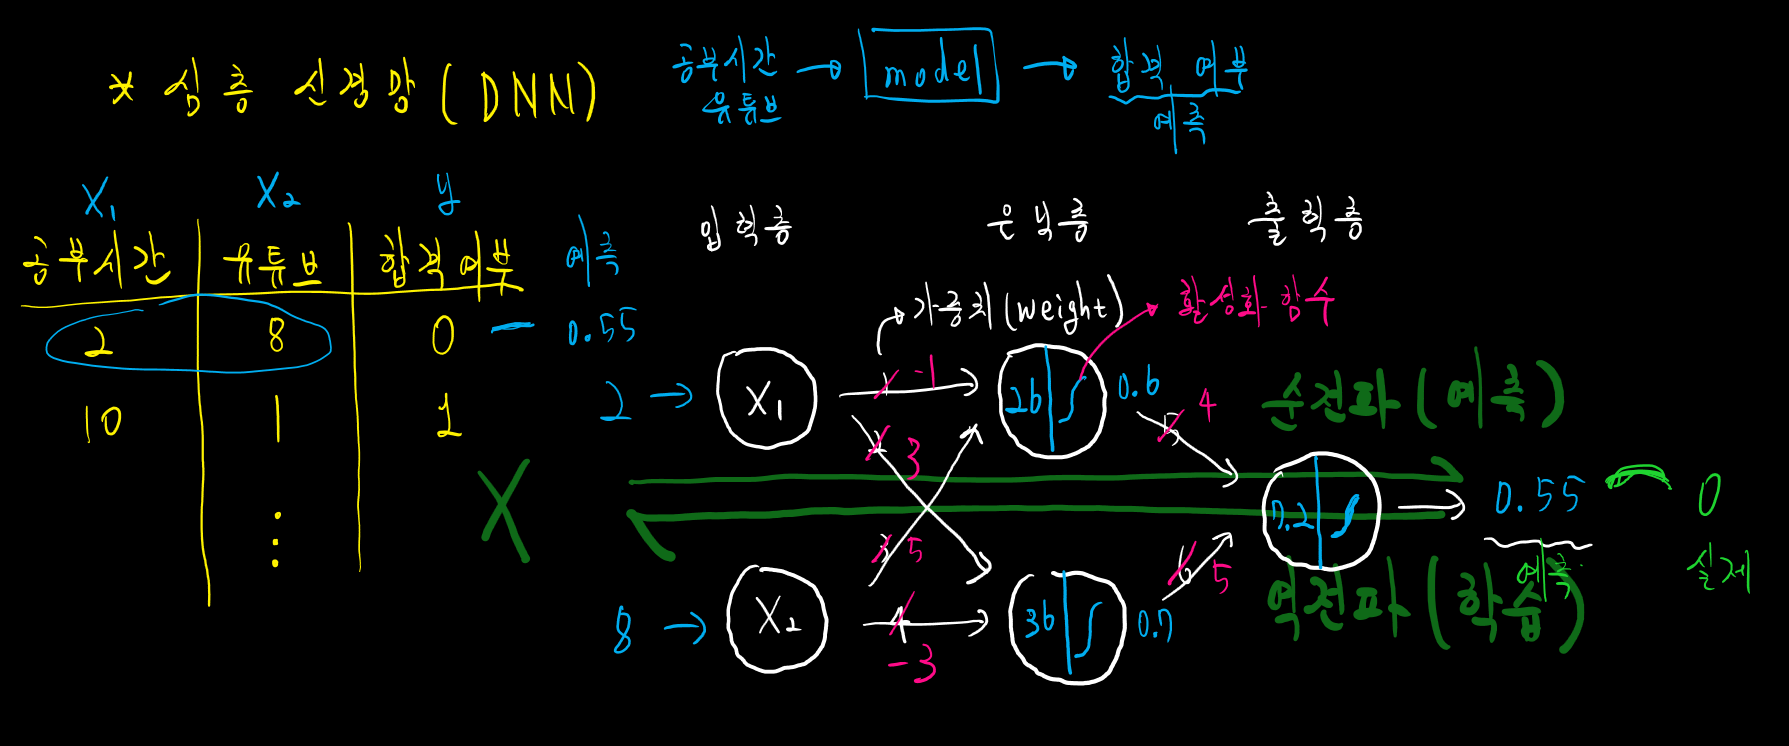 * 심층 신경망 (DNN)
공부시간 → model → 합격 여부
유튜브
예측
X₁ X₂ y
공부시간 유튜브 합격여부 예측
2 8 0 — 0.55
10 1 1
⋮
입력층 은닉층 출력층
가중치 (weight) 활성화 함수
2 → X₁ 1 -1 26 0.6 5 4
2 3
3 5
8 → X₂ 4 -3 36 0.7 6 5
7.2 → 0.55 0
예측 실제
순전파 (예측)
역전파 (학습)
X